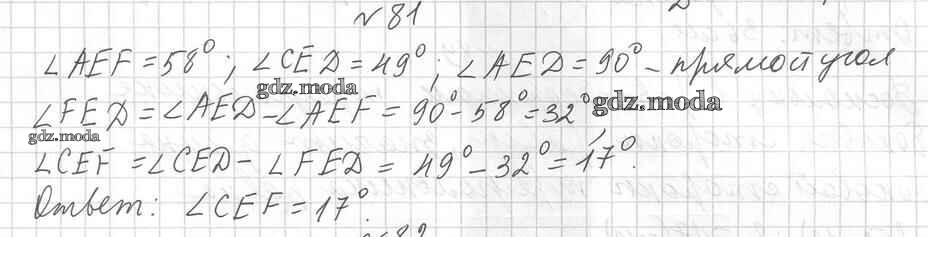 № 81
∠AEF = 58°; ∠CED = 49°; ∠AED = 90° - прямой угол
gdz.moda
∠FED = ∠AED - ∠AEF = 90° - 58° = 32°
gdz.moda
gdz.moda
∠CEF = ∠CED - ∠FED = 49° - 32° = 17°.
Ответ: ∠CEF = 17°.
№82